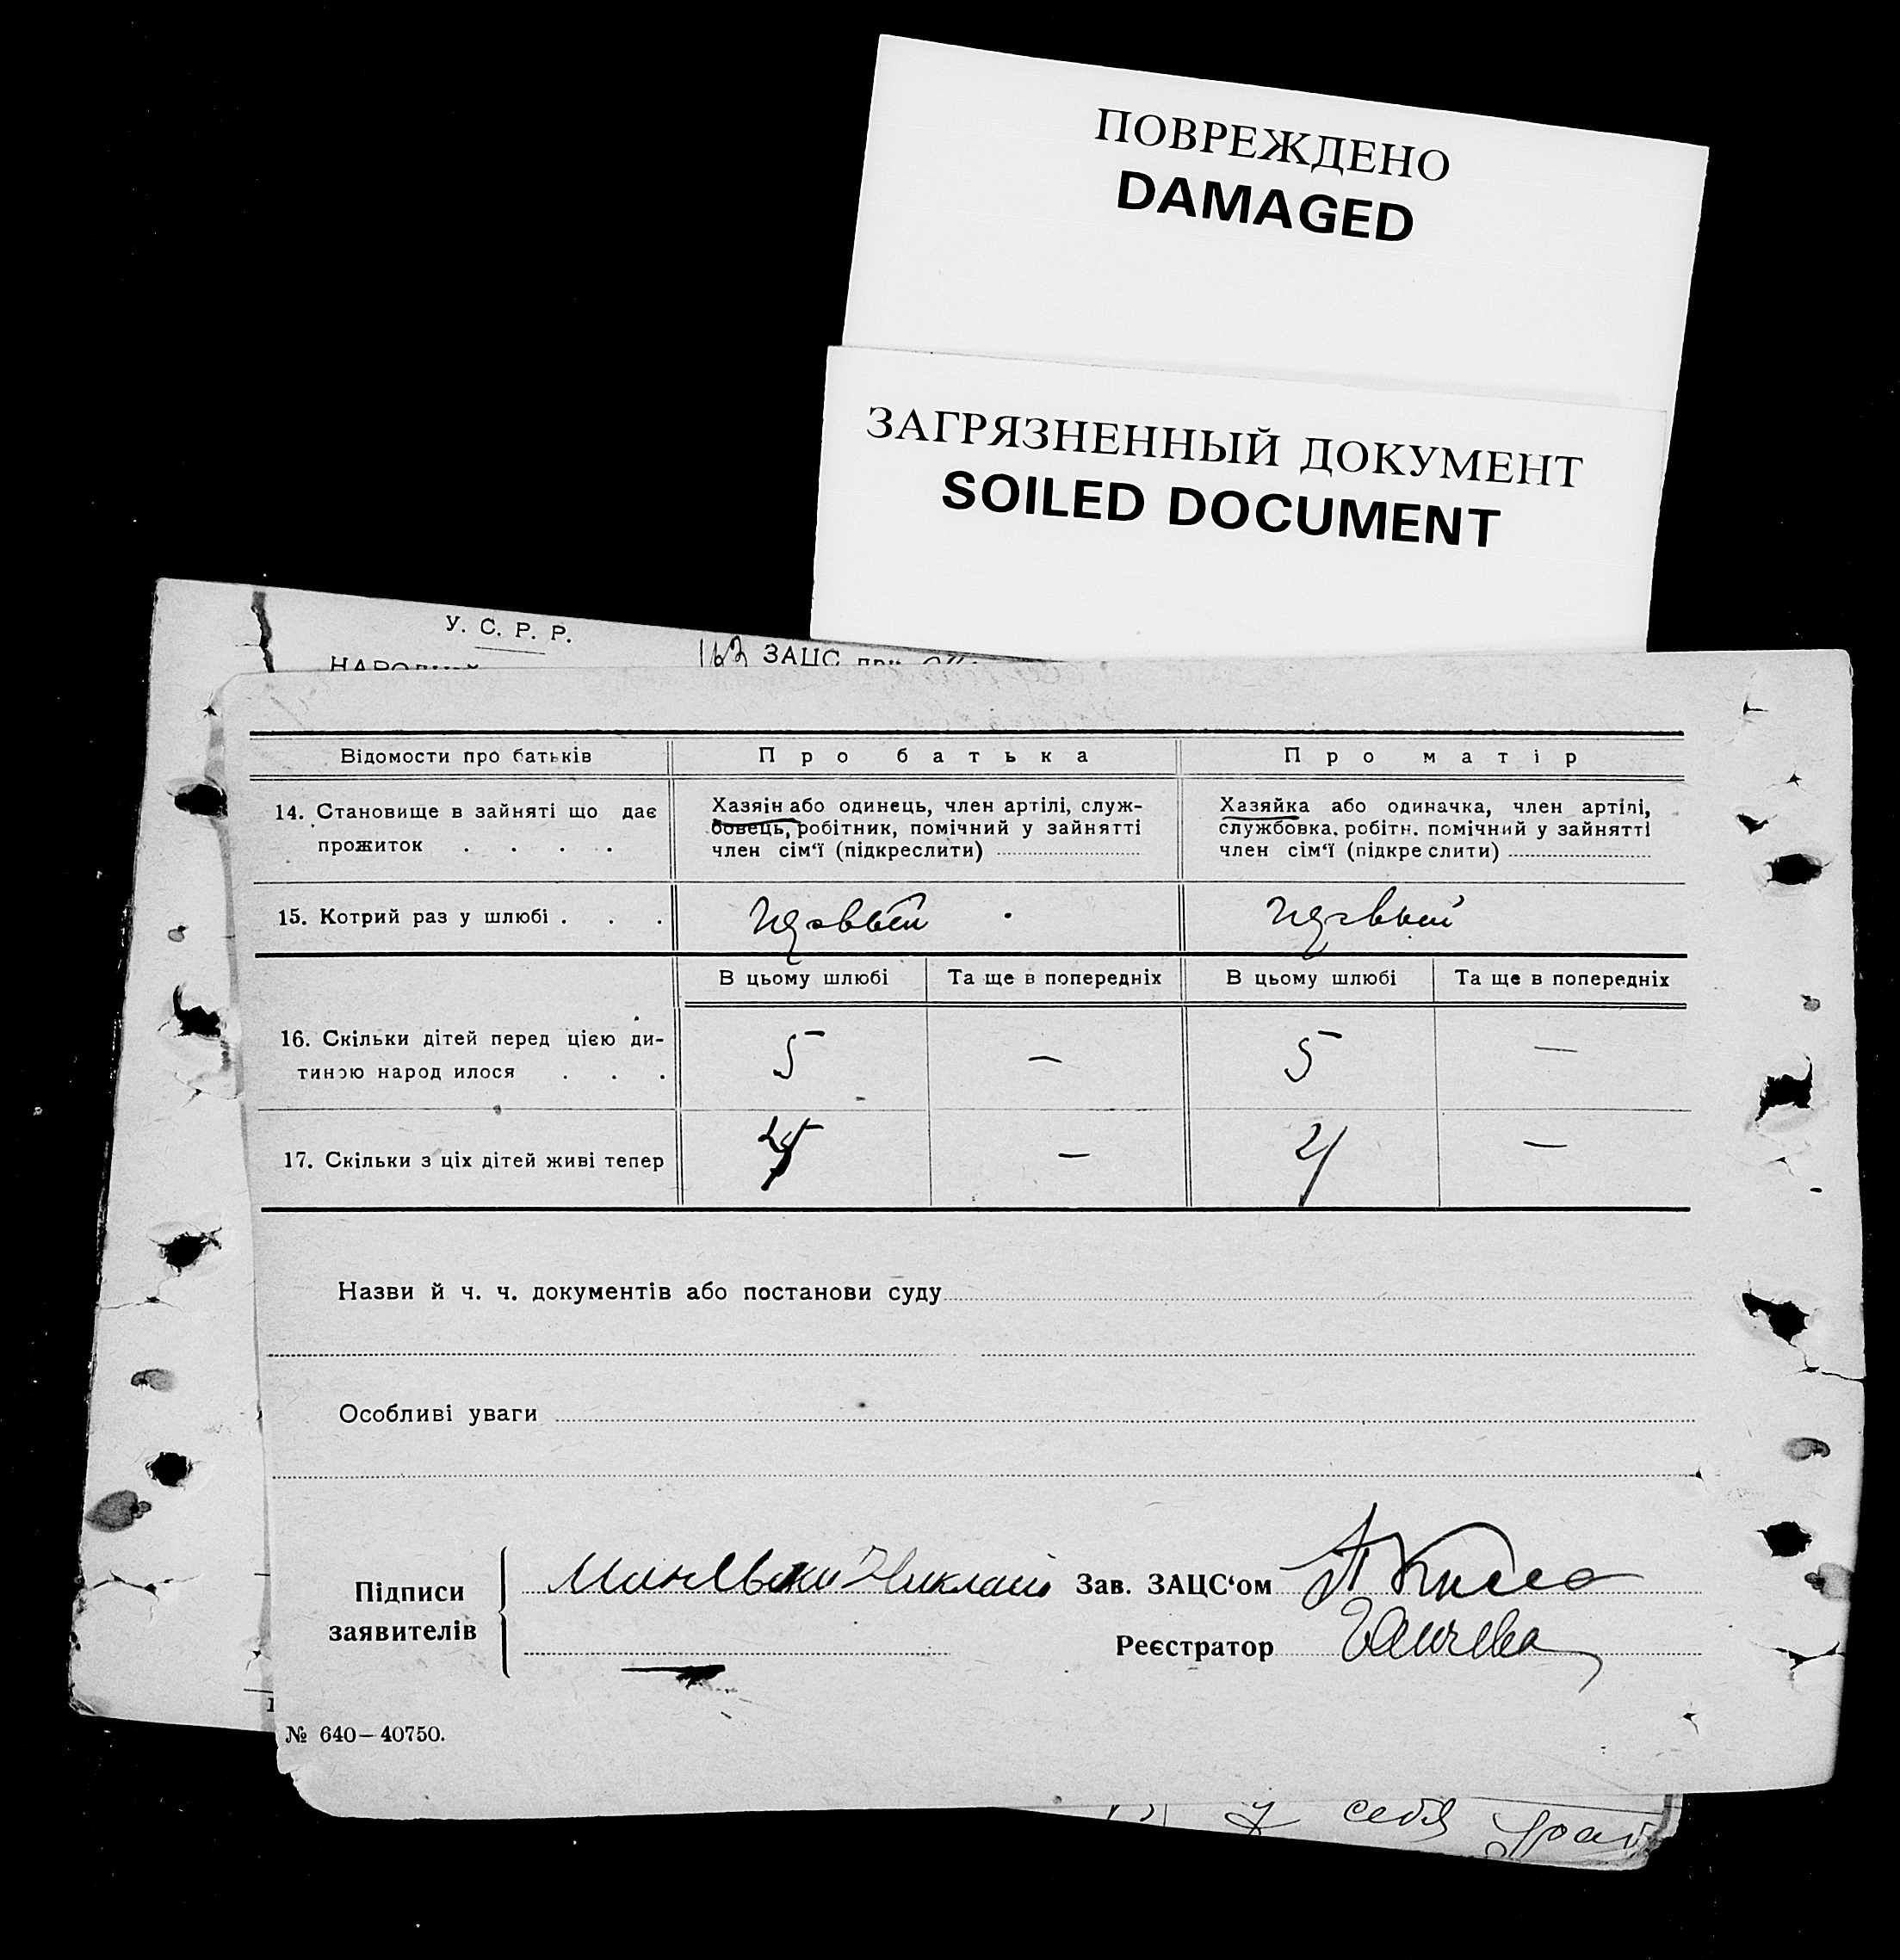 ПОВРЕЖДЕНО
DAMAGED
ЗАГРЯЗНЕННЫЙ ДОКУМЕНТ
SOILED DOCUMENT
У. С. Р. Р.
163 ЗАЦС при
Відомости про батьків Про батька Про матір
14. Становище в зайняті що дає прожиток . . . .
Хазяін або одинець, член артілі, служ-
бовець, робітник, помічний у зайнятті
член сім‘ї (підкреслити)
Хазяйка або одиначка, член артілі,
службовка, робітн. помічний у зайнятті
член сім‘ї (підкреслити)
15. Котрий раз у шлюбі . . . первый первый
В цьому шлюбі Та ще в попередніх В цьому шлюбі Та ще в попередніх
16. Скільки дітей перед цією ди-
тиною народилося . . . 5 — 5 —
17. Скільки з ціх дітей живі тепер 4 — 4 —
Назви й ч. ч. документів або постанови суду
Особливі уваги
Підписи
заявителів
Николай
Зав. ЗАЦС‘ом
Реєстратор
№ 640—40750.
у себя